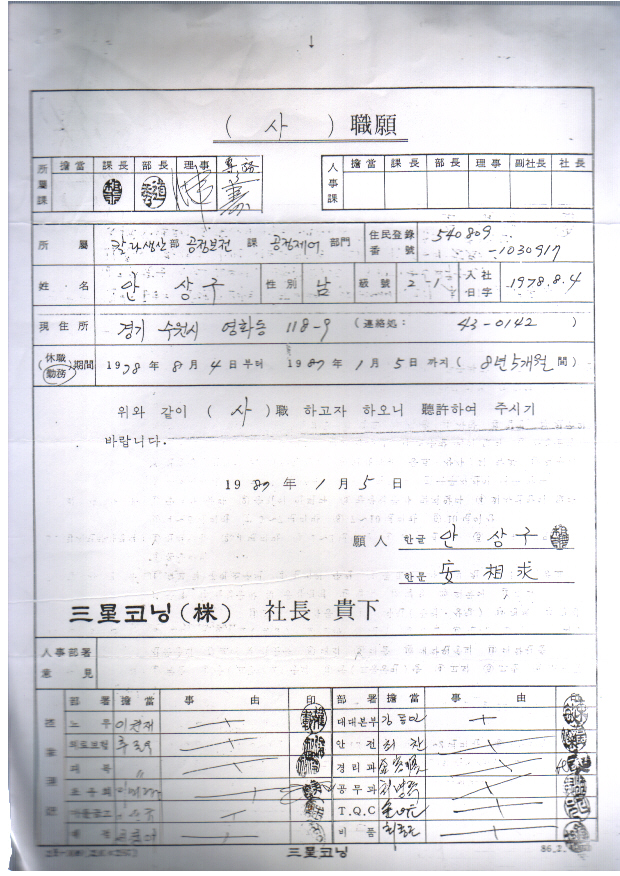 ( 사 ) 職願
所屬課 擔當 課長 部長 理事 專務
人事課 擔當 課長 部長 理事 副社長 社長
所屬 칼라생산部 공정보전課 공정제어部門 住民登錄番號 540809-1030917
姓名 안상구 性別 남 級號 2-1 入社日字 1978.8.4
現住所 경기 수원시 영화동 118-9 (連絡処: 43-0142 )
(休職 勤務) 期間 1978年 8月 4日부터 1987年 1月 5日까지 ( 8년5개월 間)
위와 같이 ( 사 ) 職 하고자 하오니 聽許하여 주시기
바랍니다.
1987年 1月 5日
願人 한글 안상구
한문 安相求
三星코닝(株) 社長 貴下
人事部署意見
部署 擔當 事由 印 部署 擔當 事由 印
노무 대대본부
의료보험 안전
경리과
공무과
T.Q.C
비품
三星코닝
86.2.